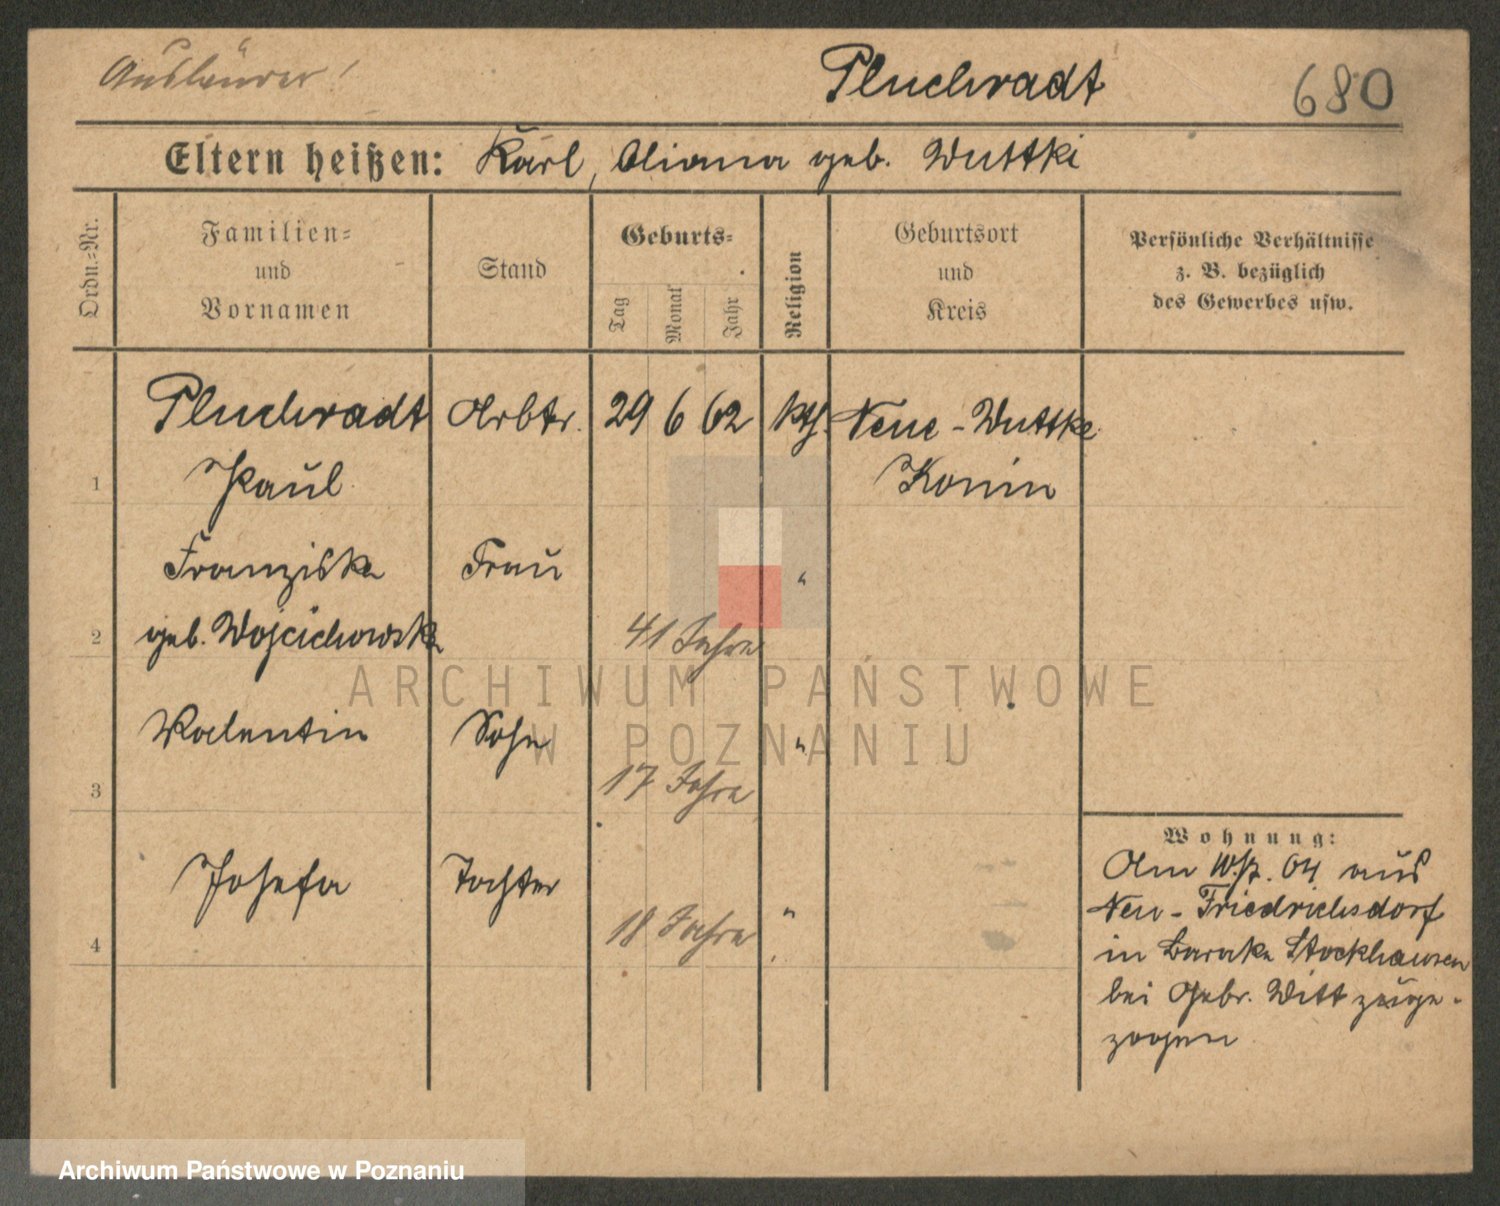 Ausländer!
Pluchradt
680
Eltern heißen: Karl, geb. Wuttki
Ordn.-Nr.
Familien-
und
Vornamen
Stand
Geburts-
Tag
Monat
Jahr
Religion
Geburtsort
und
Kreis
Persönliche Verhältnisse
z. B. bezüglich
des Gewerbes usw.
Pluchradt Arbtr. 29 6 62 kth. Neue-Wuttke
1 Paul Konin
Franziska Frau "
2 geb. Wojcichowska 41 Jahre
Valentin Sohn "
3 17 Jahre
Wohnung:
Josefa Tochter
4 18 Jahre "
Am 04 aus
Neu-Friedrichsdorf
in Barake Stockhausen
bei Gebr. Witt zuge-
zogen
ARCHIWUM PAŃSTWOWE
W POZNANIU
Archiwum Państwowe w Poznaniu